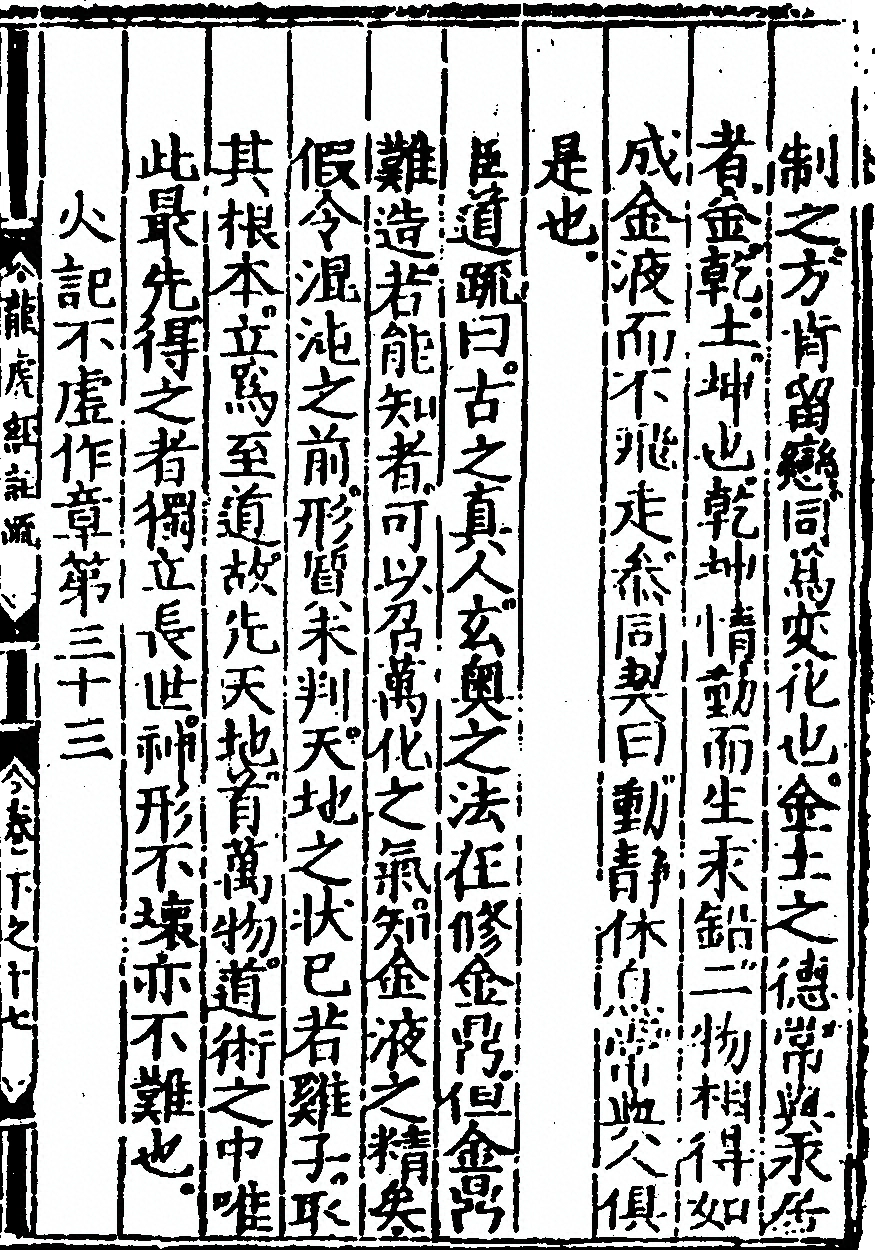 制之方肯留戀同爲變化也金土之德常與汞居
者金乾土坤也乾坤情動而生汞鉛二物相得如
成金液而不飛走叅同契曰動靜休息常與人俱
是也
臣道䟽曰古之真人玄奥之法在修金鼎但金鼎
難造若能知者可以召萬化之氣知金液之精矣
假令混沌之前形質未判天地之状已若雞子取
其根本立爲至道故先天地首萬物道術之中唯
此最先得之者獨立長世神形不壞亦不難也
火記不虚作章第三十三
龍虎經註䟽
卷下之十七